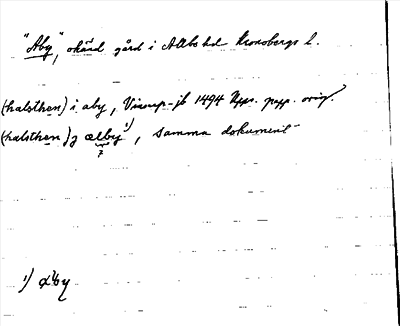 "Aby", okänd gård i Allbo hd Kronobergs l.
(halsthen) i aby, Vinarp-jb 1494 Upps. papp. orig.
(halsthen) j ælby¹⁾, samma dokument
?
1) ælby